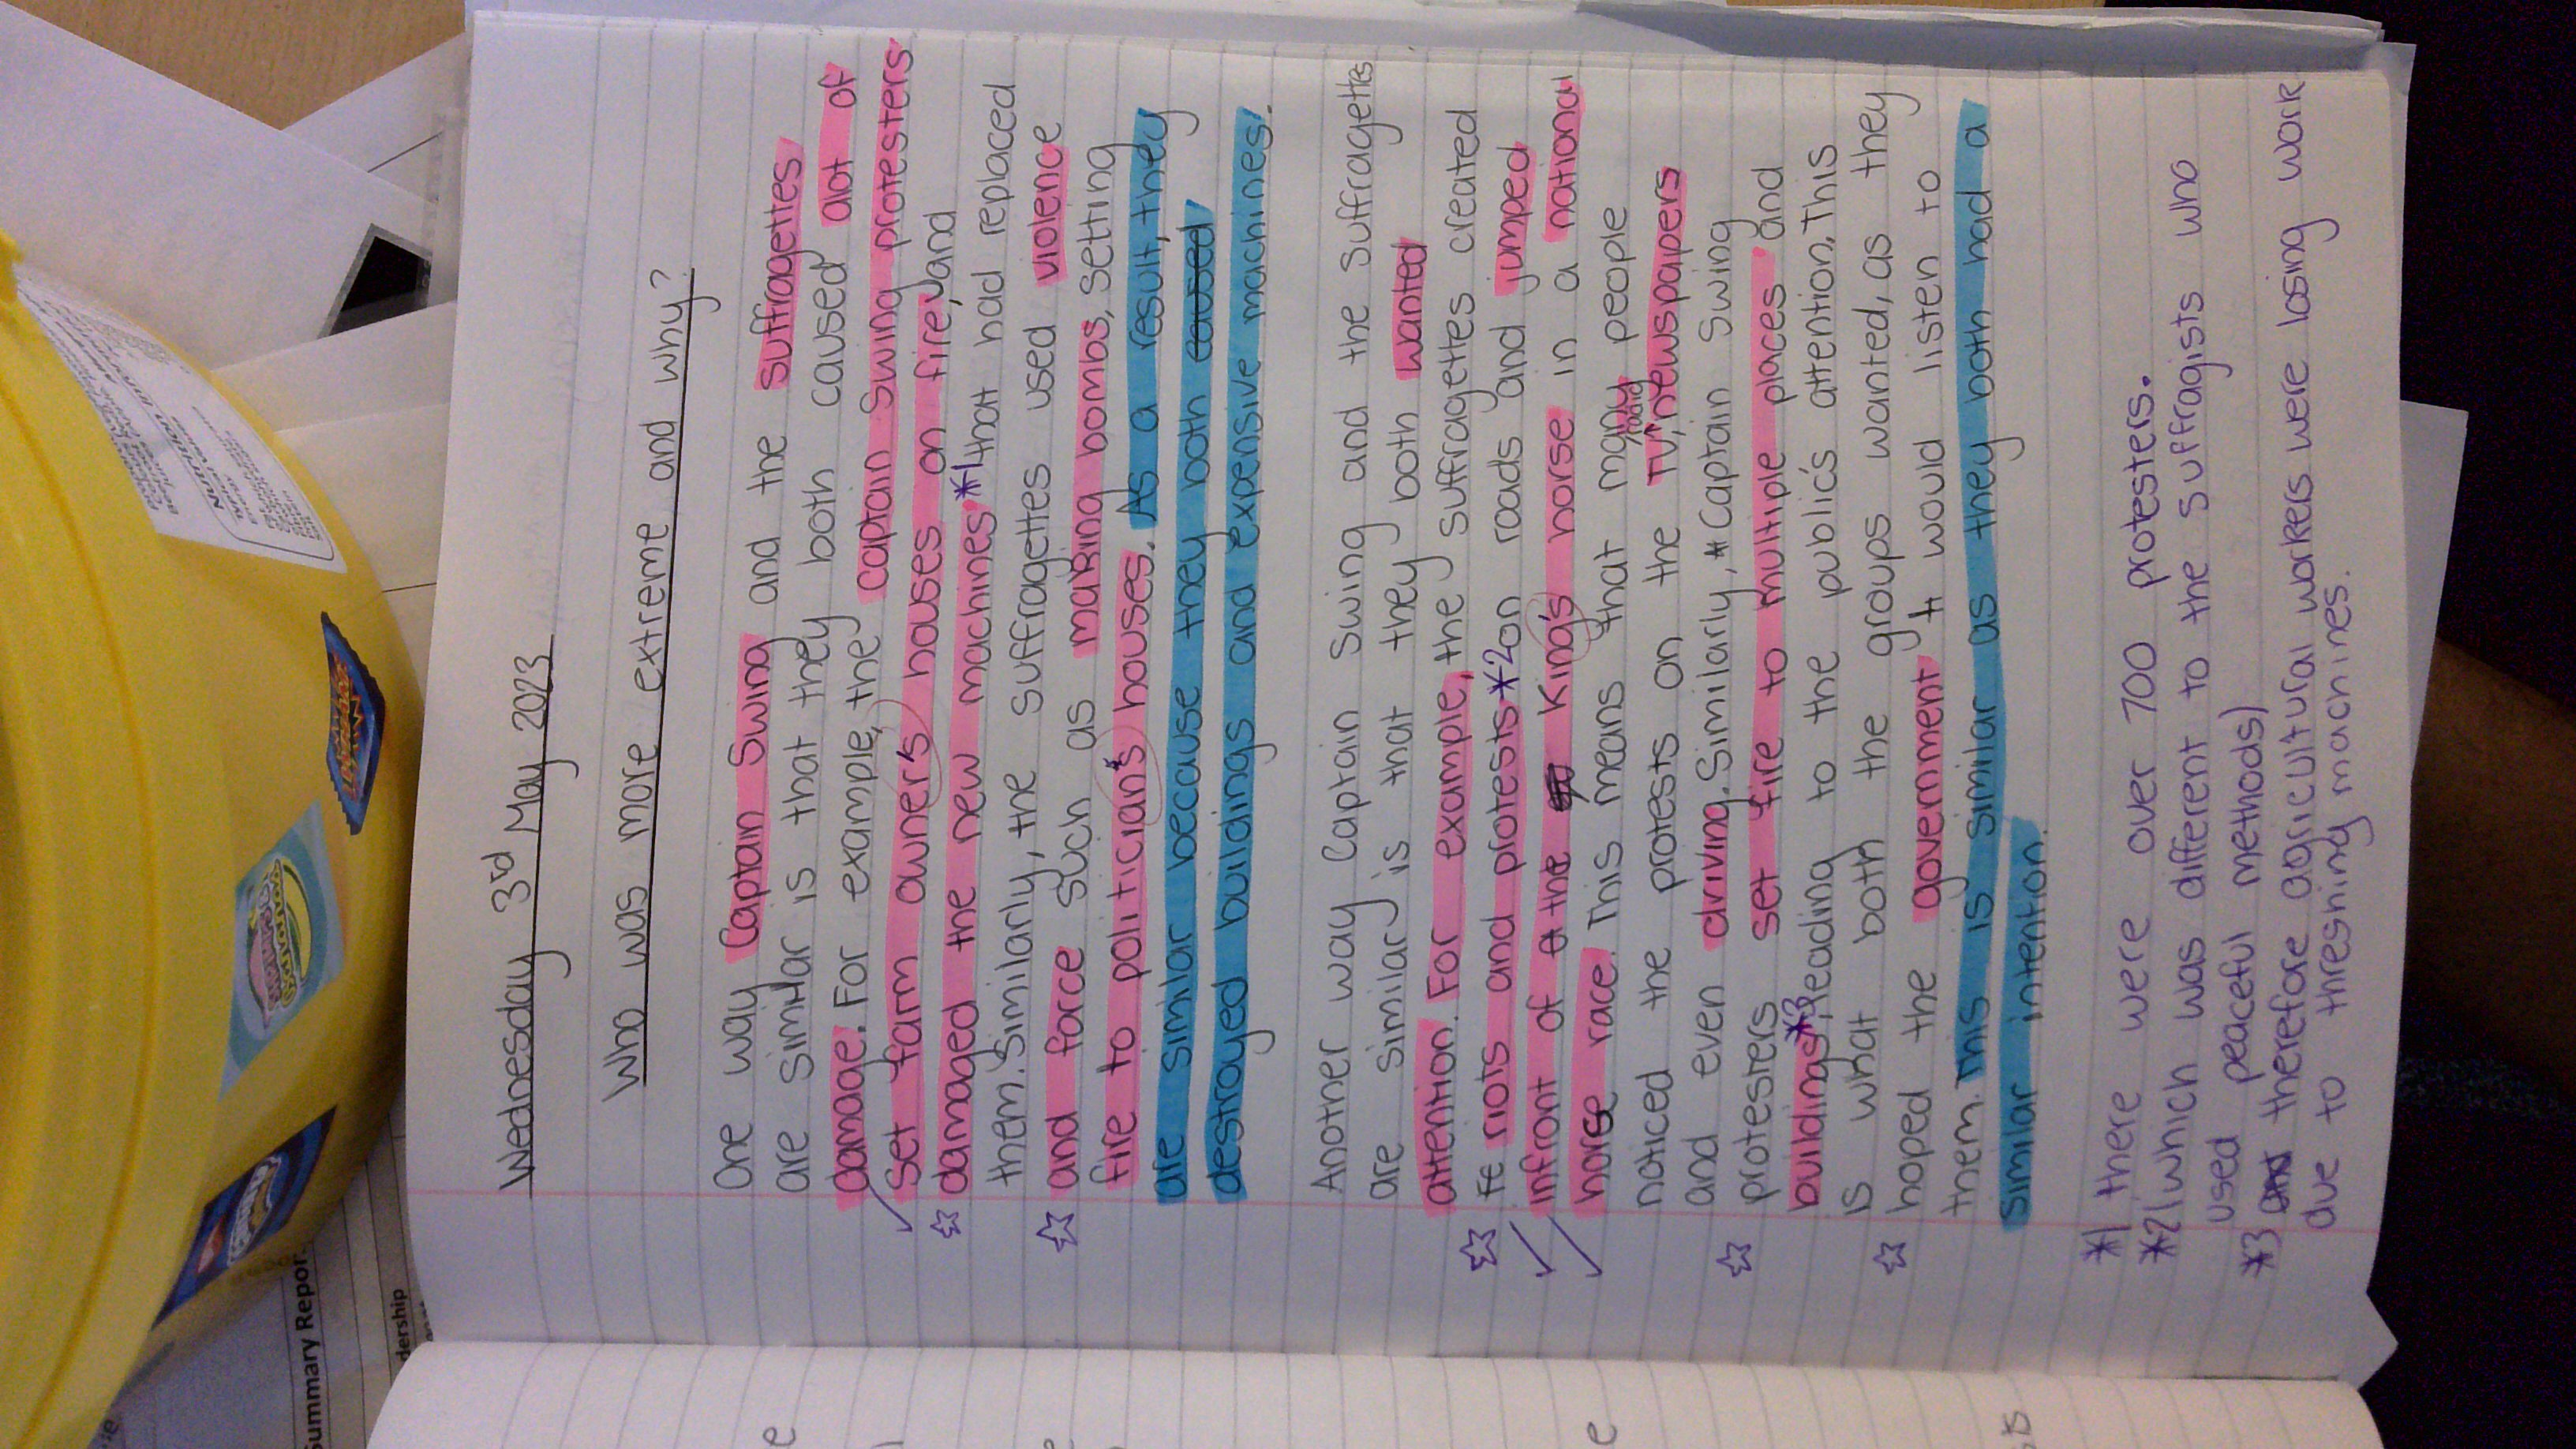 Wednesday 3rd May 2023
Who was more extreme and why?
One way Captain Swing and the suffragettes
are similar is that they both caused alot of
damage. For example, the captain swing protesters
set farm owner's houses on fire, and
damaged the new machines *1 that had replaced
them. Similarly, the suffragettes used violence
and force such as making bombs, setting
fire to politician's houses. As a result, they
are similar because they both caused
destroyed buildings and expensive machines.
Another way Captain Swing and the suffragettes
are similar is that they both wanted
attention. For example, the suffragettes created
riots and protests *2 on roads and jumped
infront of the King's horse in a national
horse race. This means that many people
noticed the protests on the TV, radio, newspapers
and even driving. Similarly, Captain Swing
protesters set fire to multiple places and
buildings *3, leading to the public's attention. This
is what both the groups wanted, as they
hoped the government would listen to
them. This is similar as they both had a
similar intention.
*1 there were over 700 protesters.
*2 (which was different to the suffragists who
used peaceful methods)
*3 and therefore agricultural workers were losing work
due to threshing machines.
Nutrition Information
Summary Report
dership